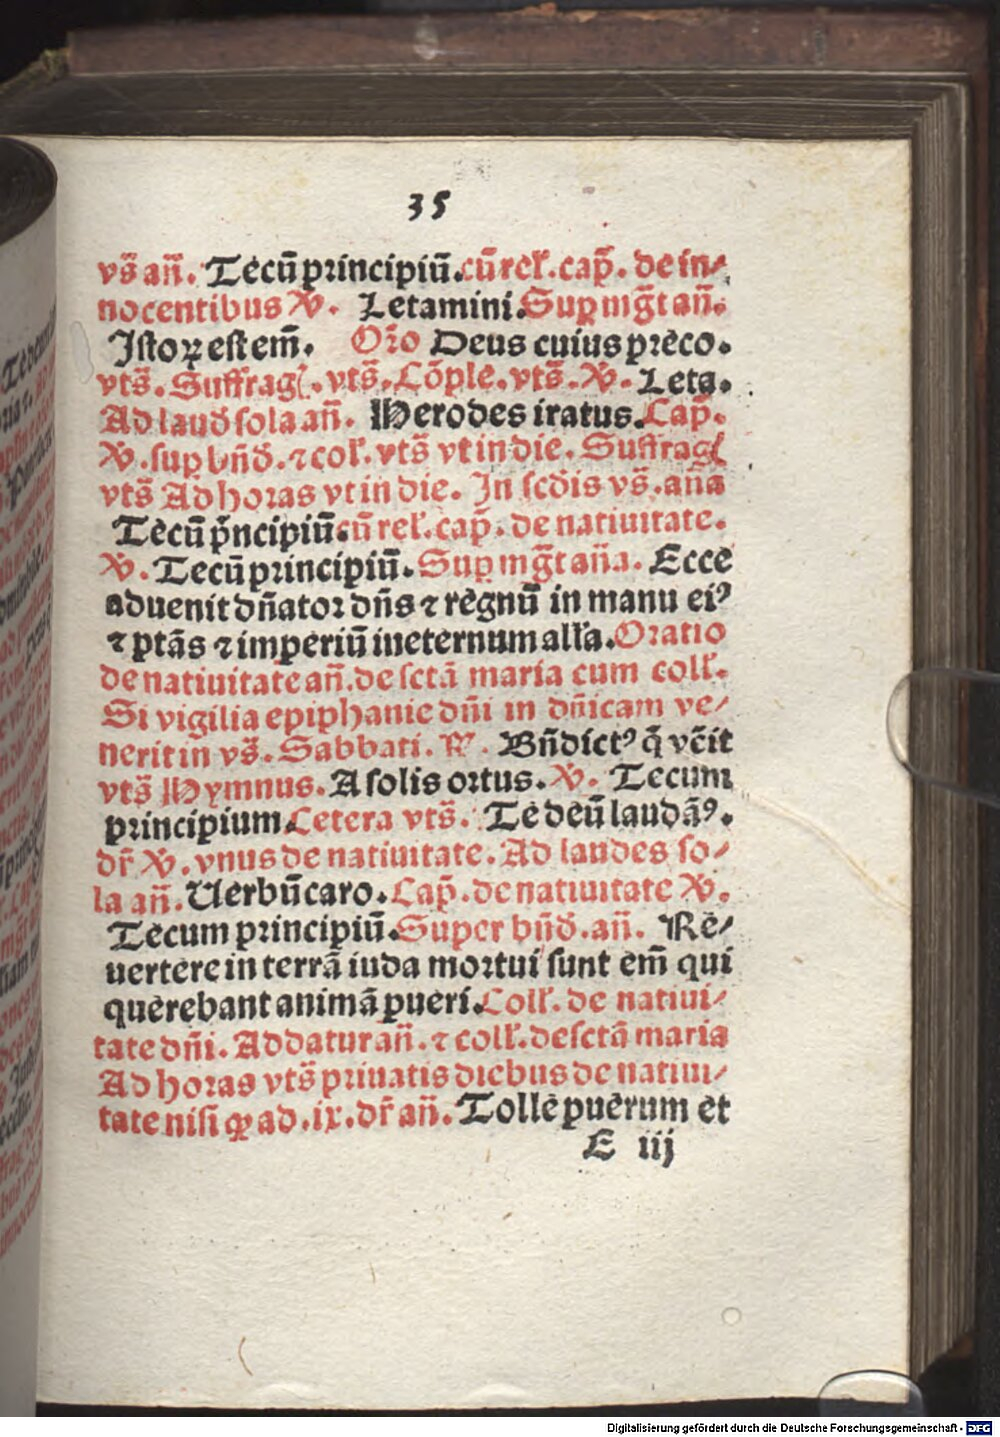 35
vs̄ an̄. Tecū principiū. cū rel̓. cap̄. de in⸗
nocentibus V̓. Letamini. Sup mḡt an̄.
Istoꝝ est em̄. Or̄o Deus cuius preco.
vts̄. Suffrag̓. vts̄. Cōple. vts̄. V̓. Leta.
Ad laud̓ sola an̄. Herodes iratus. Cap̄.
V̓. sup bn̄d̓. ⁊ col̓. vts̄ vt in die. Suffrag̓
vts̄ Ad horas vt in die. In scd̓is vs̄. an̄a
Tecū p̄ncipiū. cū rel̓. cap̄. de natiuitate.
V̓. Tecū principiū. Sup mḡt an̄a. Ecce
aduenit dn̄ator dn̄s ⁊ regnū in manu eiꝰ
⁊ ptās ⁊ imperiū ineternum all̓a. Oratio
de natiuitate an̄. de sctā maria cum coll̓.
Si vigilia epiphanie dn̄i in dn̄icam ve⸗
nerit in vs̄. Sabbati. R̓. Bn̄dictꝰ q̄ ven̄it
vts̄ Hymnus. A solis ortus. V̓. Tecum
principium. Cetera vts̄. Te deū laudāꝰ.
dr̄ V̓. vnus de natiuitate. Ad laudes so⸗
la an̄. Uerbū caro. Cap̄. de natiuitate V̓.
Tecum principiū. Super bn̄d̓. an̄. Re⸗
uertere in terrā iuda mortui sunt em̄ qui
querebant animā pueri. Coll̓. de natiui⸗
tate dn̄i. Addatur an̄. ⁊ coll̓. de sctā maria
Ad horas vts̄ priuatis diebus de natiui⸗
tate nisi ꝙ ad .ix. dr̄ an̄. Tolle puerum et
E iij
Digitalisierung gefördert durch die Deutsche Forschungsgemeinschaft - DFG